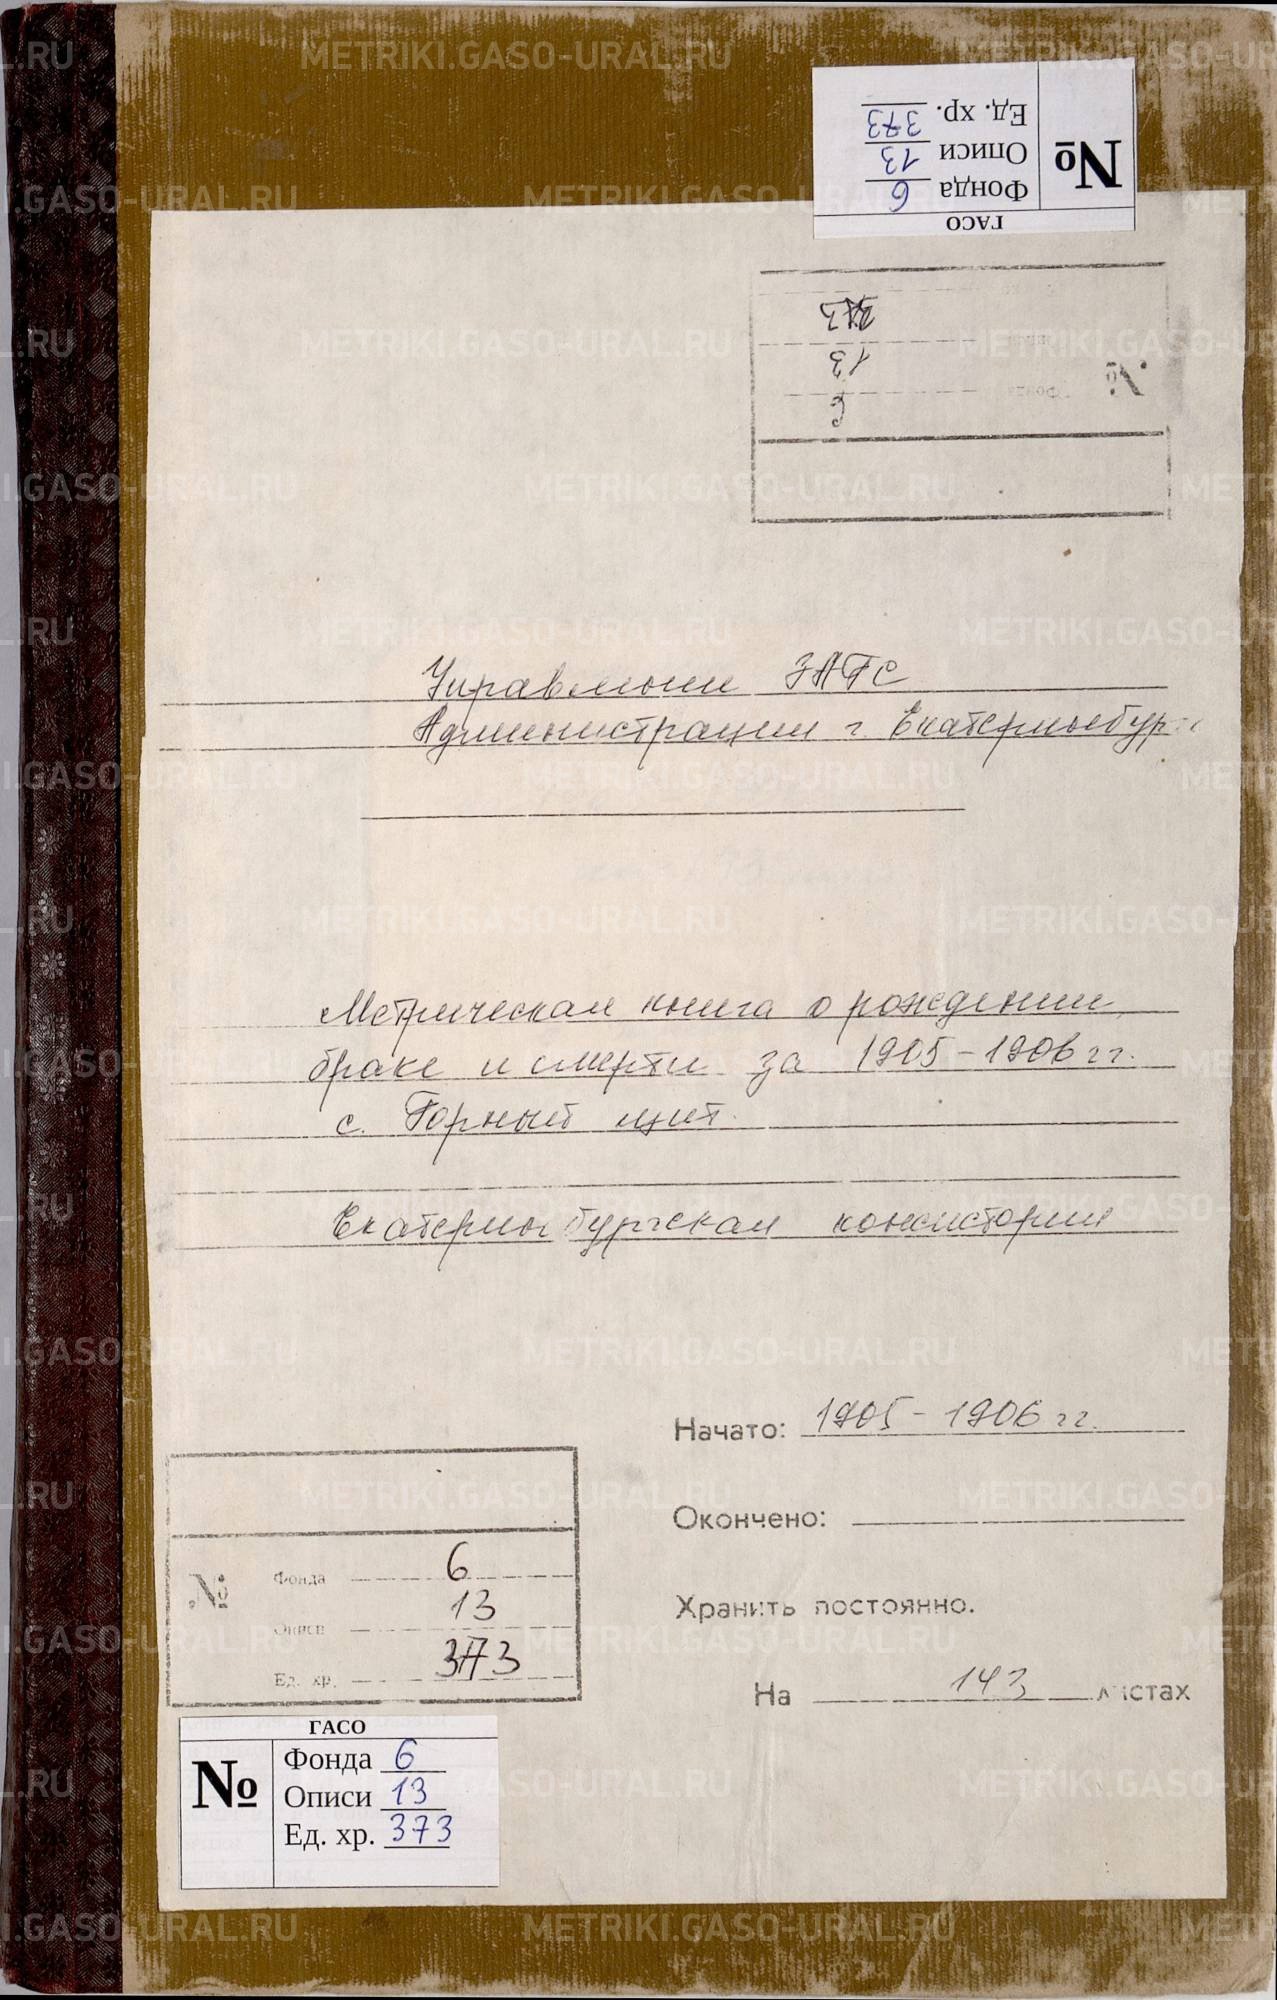 ГАСО
№
Фонда 6
Описи 13
Ед. хр. 373
№
Фонда 6
13
373
Управление ЗАГС
Администрации г. Екатеринбур
Метрическая книга о рождении,
браке и смерти за 1905-1906 гг.
с. Горный щит.
Екатеринбургская консистория
Начато: 1905-1906 гг.
Окончено:
Хранить постоянно.
На 143 листах
№
Фонда 6
Описи 13
Ед. хр. 373
ГАСО
№
Фонда 6
Описи 13
Ед. хр. 373
METRIKI.GASO-URAL.RU